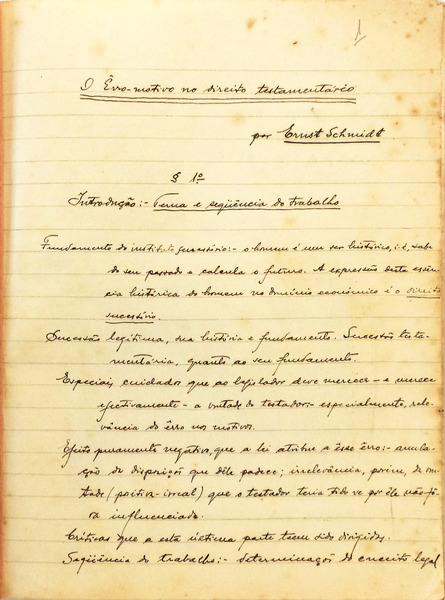 1
O Êrro-motivo no direito testamentário
por Ernst Schmidt.
§ 1º
Introdução:- Tema e seqüência do trabalho
Fundamento do instituto sucessório:- o homem é um ser histórico, i. é, sabe
do seu passado e calcula o futuro. A expressão desta essên-
cia histórica do homem no domínio económico é o direito
sucessório.
Sucessão legítima, sua história e fundamento. Sucessão testa-
mentária, quanto ao seu fundamento.
Especiais cuidados que ao legislador deve merecer - e merece
efectivamente - a vontade do testador:- especialmente, rele-
vância do êrro nos motivos.
Efeito puramente negativo, que a lei atribue a êsse êrro:- anula-
ção da disposição que dêle padece; irrelevância, porém, da von-
tade (positiva-irreal) que o testador teria tido se por êle não fô-
ra influenciado.
Críticas que a esta última parte teem sido dirigidas.
Seqüência do trabalho:- determinação do conceito legal